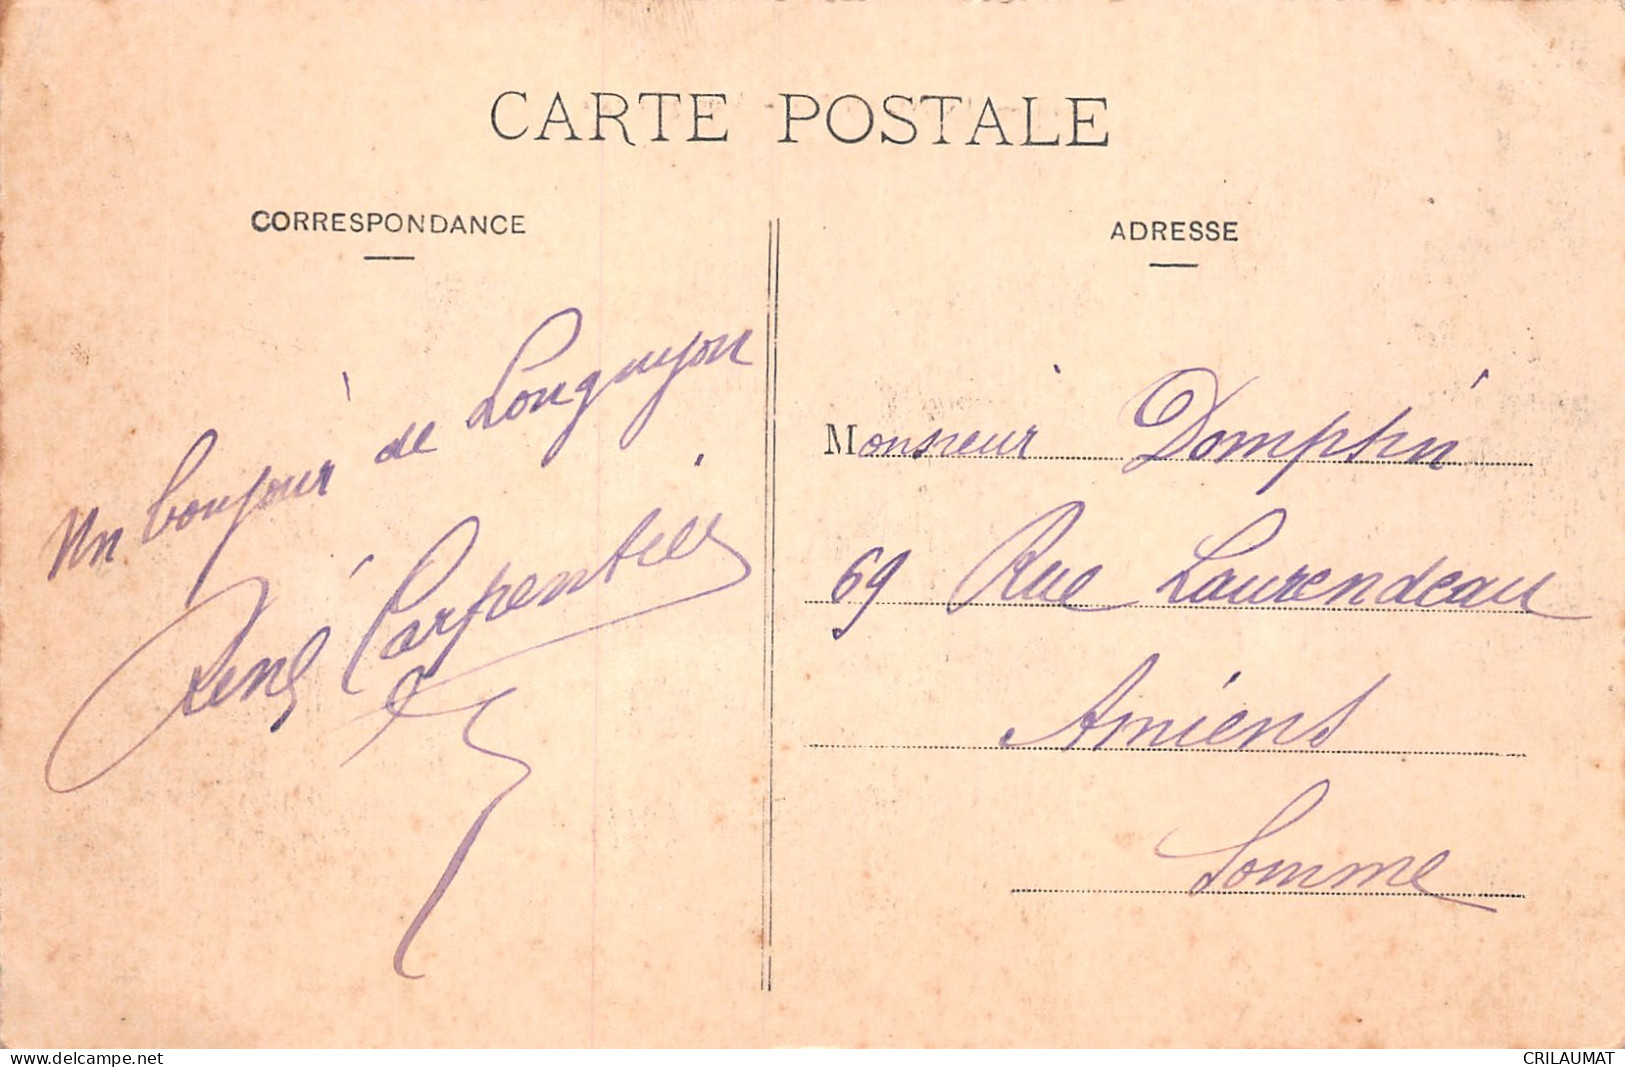 CARTE POSTALE
CORRESPONDANCE
Un bonjour de Longuyon
René Carpentier
ADRESSE
Monsieur Domptin
69 Rue Laurendeau
Amiens
Somme
delcampe.net
CRILAUMAT